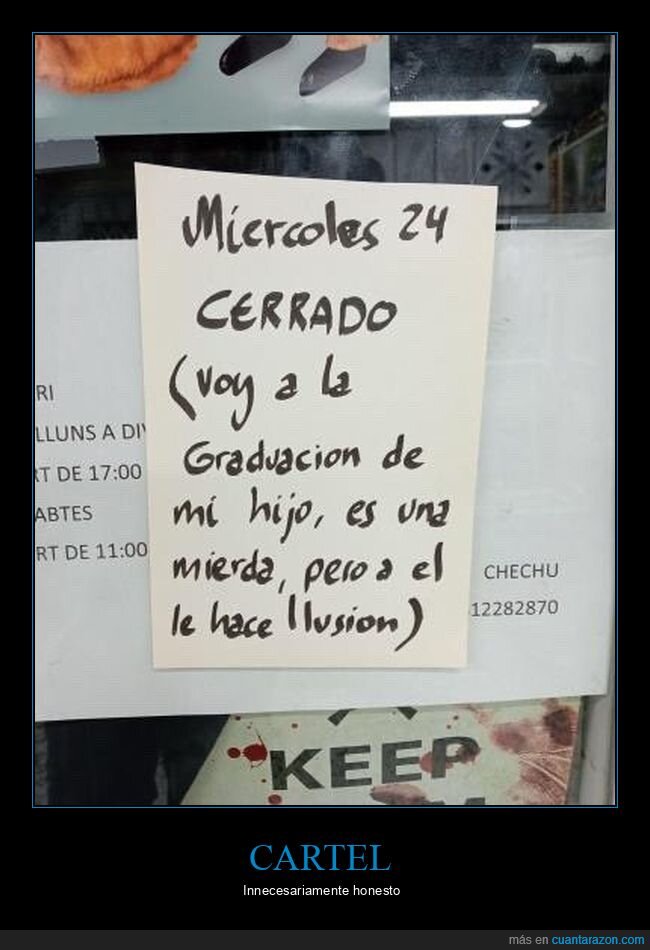 Miercoles 24
CERRADO
(voy a la
Graduacion de
mi hijo, es una
mierda, pero a el
le hace Ilusion)
RI
LLUNS A DI
RT DE 17:00
ABTES
RT DE 11:00
CHECHU
12282870
KEEP
CARTEL
Innecesariamente honesto
más en cuantarazon.com